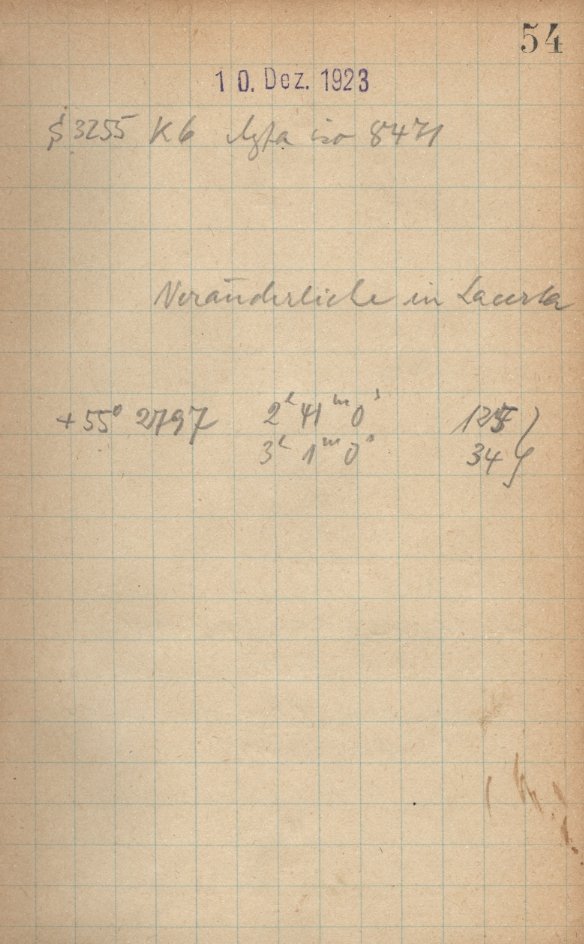 54
10. Dez. 1923
3255 K6 Agfa iso 8471
Veränderliche in Lacerta
+55° 2797 2ʰ 41ᵐ 0ˢ
3ʰ 1ᵐ 0ˢ 34